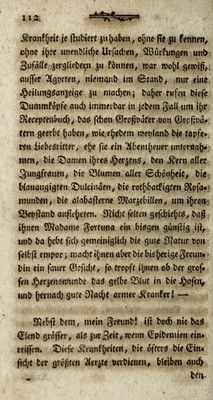 112
Krankheit je studiert zu haben, ohne sie zu kennen,
ohne ihre unendliche Ursachen, Würkungen und
Zufälle zergliedern zu können, war wohl gewiß,
ausser Agyrten, niemand im Stand, nur eine
Heilungsanzeige zu machen; daher rufen diese
Dummköpfe auch immerdar in jedem Fall um ihr
Receptenbuch, das schon Großväter von Großvä-
tern geerbt haben, wie ehedem weyland die tapfe-
ren Liebesritter, ehe sie ein Abentheuer unternah-
men, die Damen ihres Herzens, den Kern aller
Jungfrauen, die Blumen aller Schönheit, die
blauaugigten Dulcinäen, die rothbackigten Rosa-
munden, die alabasterne Marzebillen, um ihren
Beystand anfleheten. Nicht selten geschichts, daß
ihnen Madame Fortuna ein bisgen günstig ist,
und da hebt sich gemeiniglich die gute Natur von
selbst empor; macht ihnen aber die bisherige Freun-
din ein sauer Gesicht, so tropft ihnen ob der gros-
sen Herzenswunde das gelbe Blut in die Hosen,
und hernach gute Nacht armer Kranker! —
Nebst dem, mein Freund! ist doch nie das
Elend grösser, als zur Zeit, wenn Epidemien ein-
reissen. Diese Krankheiten, die öfters die Ein-
sicht der größten Aerzte verdienen, bleiben auch
den